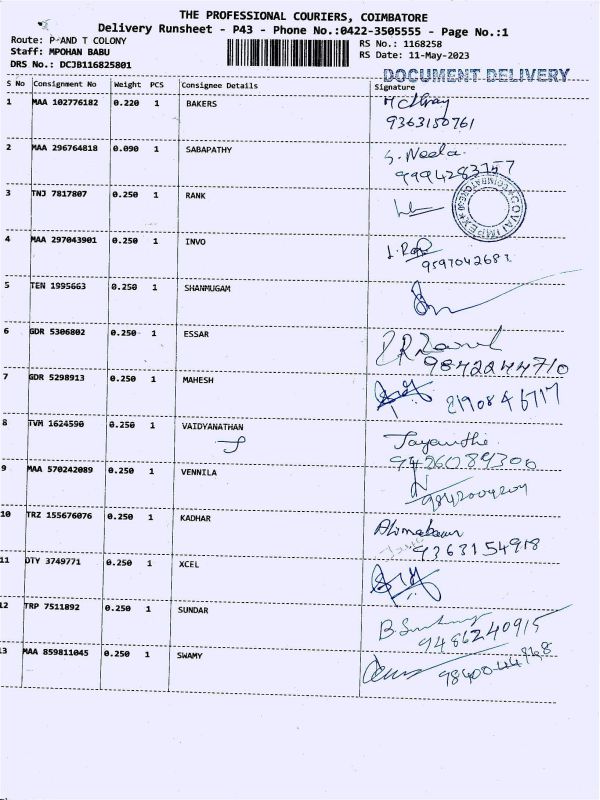 THE PROFESSIONAL COURIERS, COIMBATORE
Delivery Runsheet - P43 - Phone No.:0422-3505555 - Page No.:1
Route: P AND T COLONY
Staff: MPOHAN BABU
DRS No.: DCJB116825801
RS No.: 1168258
RS Date: 11-May-2023
DOCUMENT DELIVERY
S No Consignment No Weight PCS Consignee Details Signature
1 MAA 102776182 0.220 1 BAKERS
9363150761
2 MAA 296764818 0.090 1 SABAPATHY S. Neela
3 TNJ 7817807 0.250 1 RANK
COVAI IMPEX
4 MAA 297043901 0.250 1 INVO
5 TEN 1995663 0.250 1 SHANMUGAM
6 GDR 5306802 0.250 1 ESSAR
9842244710
7 GDR 5298913 0.250 1 MAHESH
8 TVM 1624590 0.250 1 VAIDYANATHAN
9426084300
9 MAA 570242089 0.250 1 VENNILA
10 TRZ 155676076 0.250 1 KADHAR
9363154918
11 DTY 3749771 0.250 1 XCEL
12 TRP 7511892 0.250 1 SUNDAR
9486240915
13 MAA 859811045 0.250 1 SWAMY